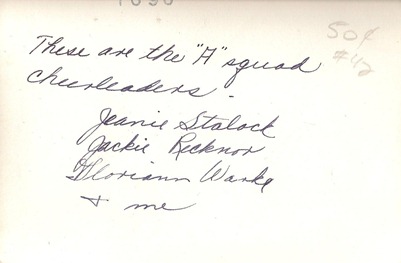 50¢
#42
These are the "A" squad
cheerleaders.
Jeanie Stalock
Jackie Recknor
Gloriann Warke
& me